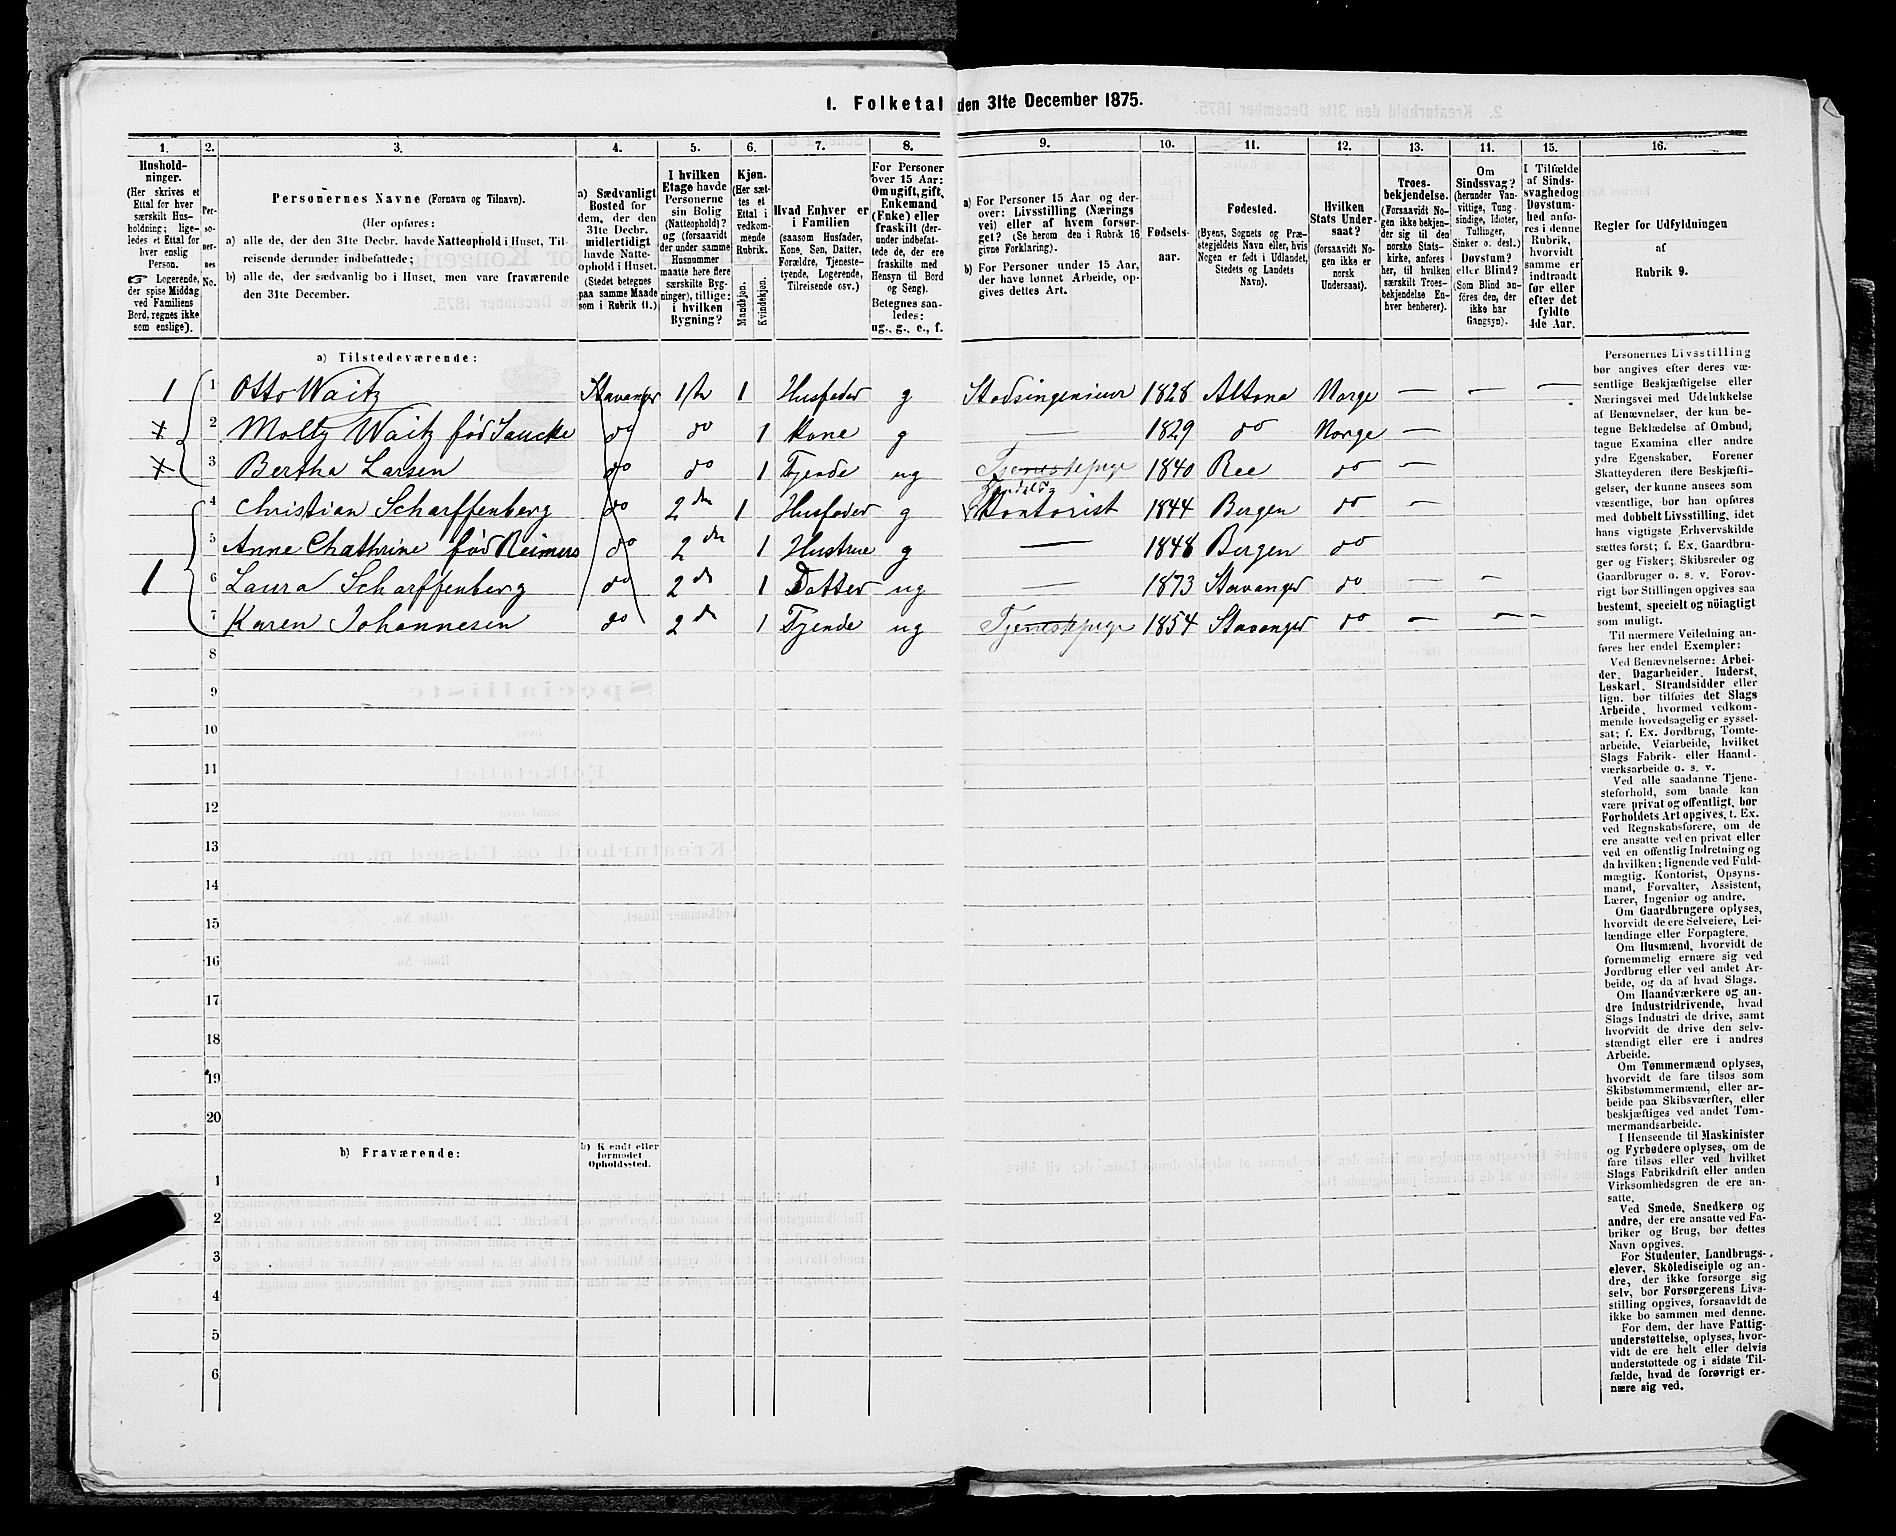 1. Folketal den 31te December 1875.
1. 2. 3. 4. 5. 6. 7. 8. 9. 10. 11. 12. 13. 11. 15. 16.
Hushold-
ninger.
(Her skrives et
Ettal for hver
særskilt Hus-
holdning; lige-
ledes et Ettal for
hver enslig
Person.
Logerende,
der spise Middag
ved Familiens
Bord, regnes ikke
som enslige).
Per-
so-
ner-
nes
No.
Personernes Navne (Fornavn og Tilnavn).
(Her opføres:
a) alle de, der den 31te Decbr. havde Natteophold i Huset, Til-
reisende derunder indbefattede;
b) alle de, der sædvanlig bo i Huset, men vare fraværende
den 31te December.
a) Sædvanligt
Bosted for
dem, der den
31te Decbr.
midlertidigt
havde Natte-
ophold i Huset.
(Stedet betegnes
paa samme Maade
som i Rubrik 11.)
I hvilken
Etage havde
Personerne
sin Bolig
(Natteophold)?
og (forsaavidt
der under samme
Husnummer
maatte høre flere
særskilte Byg-
ninger), tillige:
i hvilken
Bygning?
Kjøn.
(Her sæt-
tes et
Ettal i
vedkom-
mende
Rubrik.
Mandkjøn.
Kvindekjøn.
Hvad Enhver er
i Familien
(saasom Husfader,
Kone, Søn, Datter,
Forældre, Tjeneste-
tyende, Logerende,
Tilreisende osv.)
For Personer
over 15 Aar:
Om ugift, gift,
Enkemand
(Enke) eller
fraskilt (der-
under indbefat-
tede de, der ere
fraskilte med
Hensyn til Bord
og Seng).
Betegnes saa-
ledes:
ug., g., e., f.
a) For Personer 15 Aar og der-
over: Livsstilling (Nærings
vei) eller af hvem forsør-
get? (Se herom den i Rubrik 16
givne Forklaring).
b) For Personer under 15 Aar,
der have lønnet Arbeide, op-
gives dettes Art.
Fødsels-
aar.
Fødested.
(Byens, Sognets og Præ-
stegjeldets Navn eller, hvis
Nogen er født i Udlandet,
Stedets og Landets
Navn).
Hvilken
Stats Under-
saat?
(forsaavidt No-
gen ikke er
norsk
Undersaat).
Troes-
bekjendelse.
(Forsaavidt No-
gen ikke bekjen-
der sig til den
norske Stats-
kirke, anføres
her, til hvilken
særskilt Troes-
bekjendelse En-
hver henhører).
Om
Sindssvag?
(herunder Van-
vittige, Tung
sindige, Idioter,
Tullinger,
Sinker o. desl.)
Døvstum?
eller Blind?
(Som Blind an-
føres den, der
ikke har
Gangsyn).
I Tilfælde
af Sinds-
svaghed og
Døvstum-
hed anfø-
res i denne
Rubrik,
hvorvidt
samme er
indtraadt
før eller
efter det
fyldte
4de Aar.
Regler for Udfyldningen
af
Rubrik 9.
a) Tilstedeværende:
1 1 Otto Waitz Stavanger 1ste 1 Husfader g Stadsingenieur 1828 Altona Norge — — —
x 2 Molty Waitz fød do do 1 Kone g — 1829 do Norge —
x 3 Bertha Larsen do do 1 Tjende ug Tjenestepige 1840 Ree do —
4 Christian Scharffenberg do 2den 1 Husfader g Handels Kontorist 1844 Bergen do —
5 Anne Chathrine fød Reimers do 2den 1 Hustrue g — 1848 Bergen do
1 6 Laura Scharffenberg do 2d 1 Datter ug — 1873 Stavanger do — —
7 Karen Johannesen do 2d 1 Tjende ug Tjenestepige 1854 Stavanger do — —
8
9
10
11
12
13
14
15
16
17
18
19
20
b) Fraværende:
b) Kjendt eller
formodet
Opholdssted.
1
2
3
4
5
6
Personernes Livsstilling
bør angives efter deres væ-
sentlige Beskjæftigelse eller
Næringsvei med Udelukkelse
af Benævnelser, der kun be-
tegne Beklædelse af Ombud,
tagne Examina eller andre
ydre Egenskaber. Forener
Skatteyderen flere Beskjæfti-
gelser, der kunne ansees som
væsentlige, bør han opføres
med dobbelt Livsstilling, idet
hans vigtigste Erhvervskilde
sættes først; f. Ex. Gaardbru-
ger og Fisker; Skibsreder og
Gaardbruger o. s. v. Forøv-
rigt bør Stillingen opgives saa
bestemt, specielt og nøiagtigt
som muligt.
Til nærmere Veiledning an-
føres her endel Exempler:
Ved Benævnelserne: Arbei-
der, Dagarbeider, Inderst,
Løskarl, Strandsidder eller
lign. bør tilføies det Slags
Arbeide, hvormed vedkom-
mende hovedsagelig er syssel-
sat; f. Ex. Jordbrug, Tomte-
arbeide, Veiarbeide, hvilket
Slags Fabrik- eller Haand-
værksarbeide o. s. v.
Ved alle saadanne Tjene-
steforhold, som baade kan
være privat og offentligt, bør
Forholdets Art opgives, t. Ex.
ved Regnskabsførere, om de
ere ansatte ved en privat eller
ved en offentlig Indretning og
da hvilken; lignende ved Fuld-
mægtig, Kontorist, Opsyns-
mand, Forvalter, Assistent,
Lærer, Ingeniør og andre.
Om Gaardbrugere oplyses,
hvorvidt de ere Selveiere, Lei-
lændinge eller Forpagtere.
Om Husmænd, hvorvidt de
fornemmelig ernære sig ved
Jordbrug eller ved andet Ar-
beide, og da af hvad Slags.
Om Haandværkere og an-
dre Industridrivende, hvad
Slags Industri de drive, samt
hvorvidt de drive den selv-
stændigt eller ere i andres
Arbeide.
Om Tømmermænd oplyses,
hvorvidt de fare tilsøs som
Skibstømmermænd, eller ar-
beide paa Skibsværfter, eller
beskjæftiges ved andet Tøm-
mermandsarbeide.
I Henseende til Maskinister
og Fyrbødere oplyses, om de
fare tilsøs eller ved hvilket
Slags Fabrikdrift eller anden
Virksomhedsgren de ere an-
satte.
Ved Smede, Snedkere og
andre, der ere ansatte ved Fa-
briker og Brug, bør dettes
Navn opgives.
For Studenter, Landbrugs-
elever, Skoledisciple og an-
dre, der ikke forsørge sig
selv, bør Forsørgerens Livs-
stilling opgives, forsaavidt de
ikke bo sammen med denne.
For dem, der have Fattig-
understøttelse, oplyses, hvor-
vidt de ere helt eller delvis
understøttede og i sidste Til-
fælde, hvad de forøvrigt er-
nære sig ved.